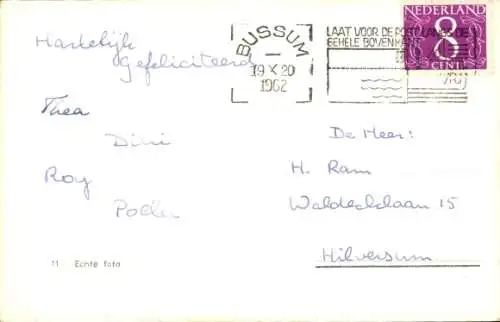 Hartelijk
gefeliciteerd
Thea
Dini
Roy
11 Echte foto
BUSSUM
19 X 20
1962
LAAT VOOR DE POST LANGS DE
GEHELE BOVENKANT
NEDERLAND
8
CENT
De Heer:
H. Ram
Waldecklaan 15
Hilversum